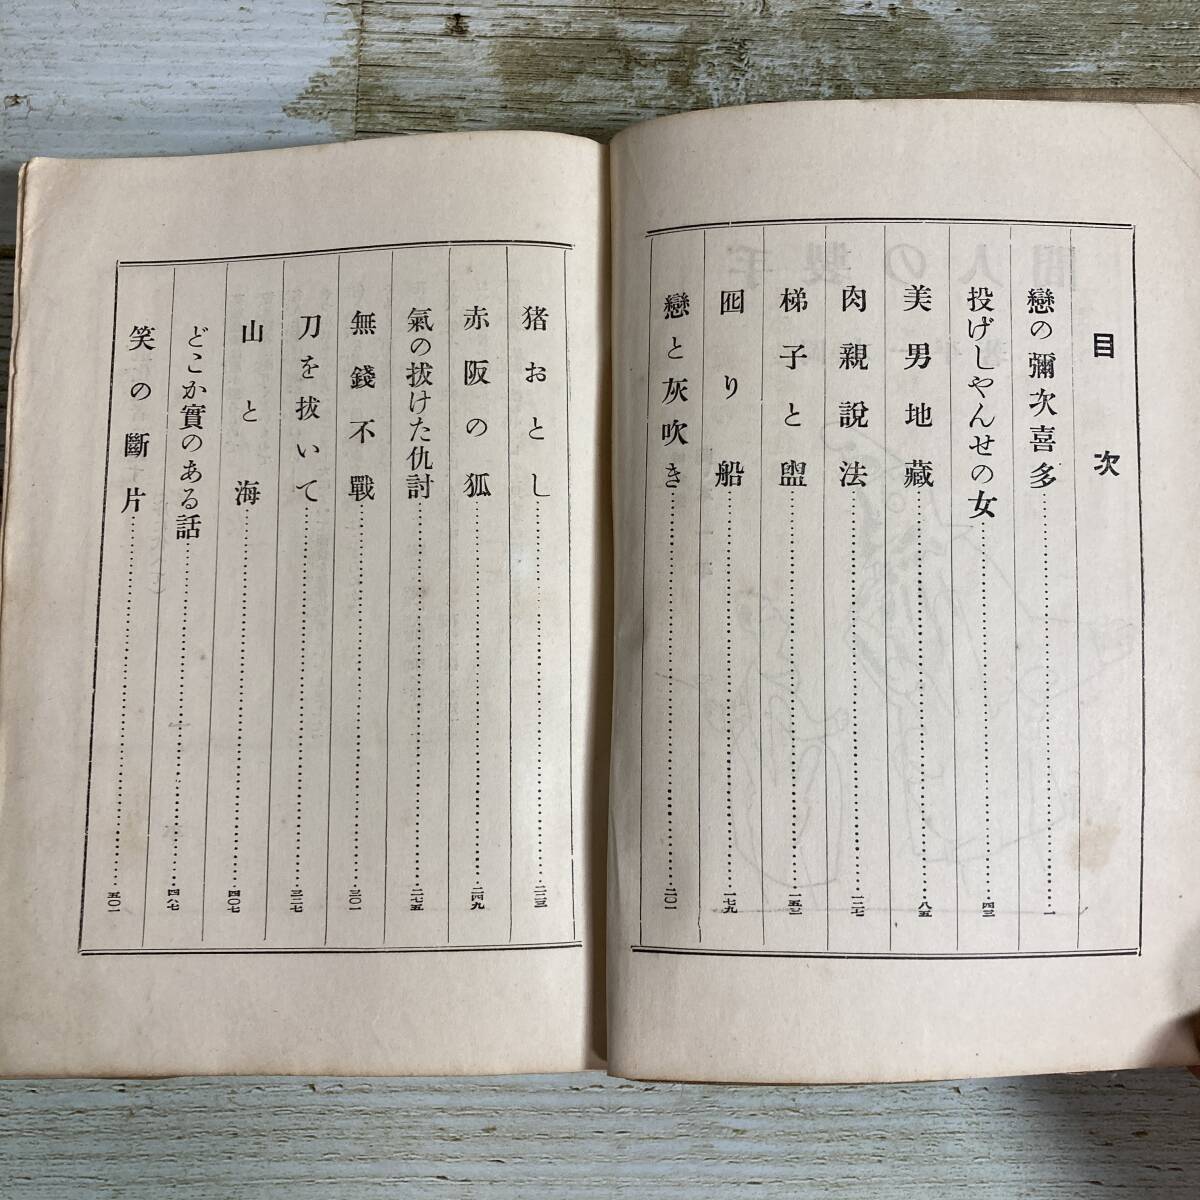 目次
戀の彌次喜多 一
投げしやんせの女 四三
美男地藏 八五
肉親說法 一二七
梯子と盥 一五三
囮り船 一七九
戀と灰吹き 二〇一
猪おとし 二二三
赤阪の狐 二四九
氣の拔けた仇討 二七五
無錢不戰 三〇一
刀を拔いて 三二七
山と海 四〇七
どこか實のある話 四八七
笑の斷片 五〇一